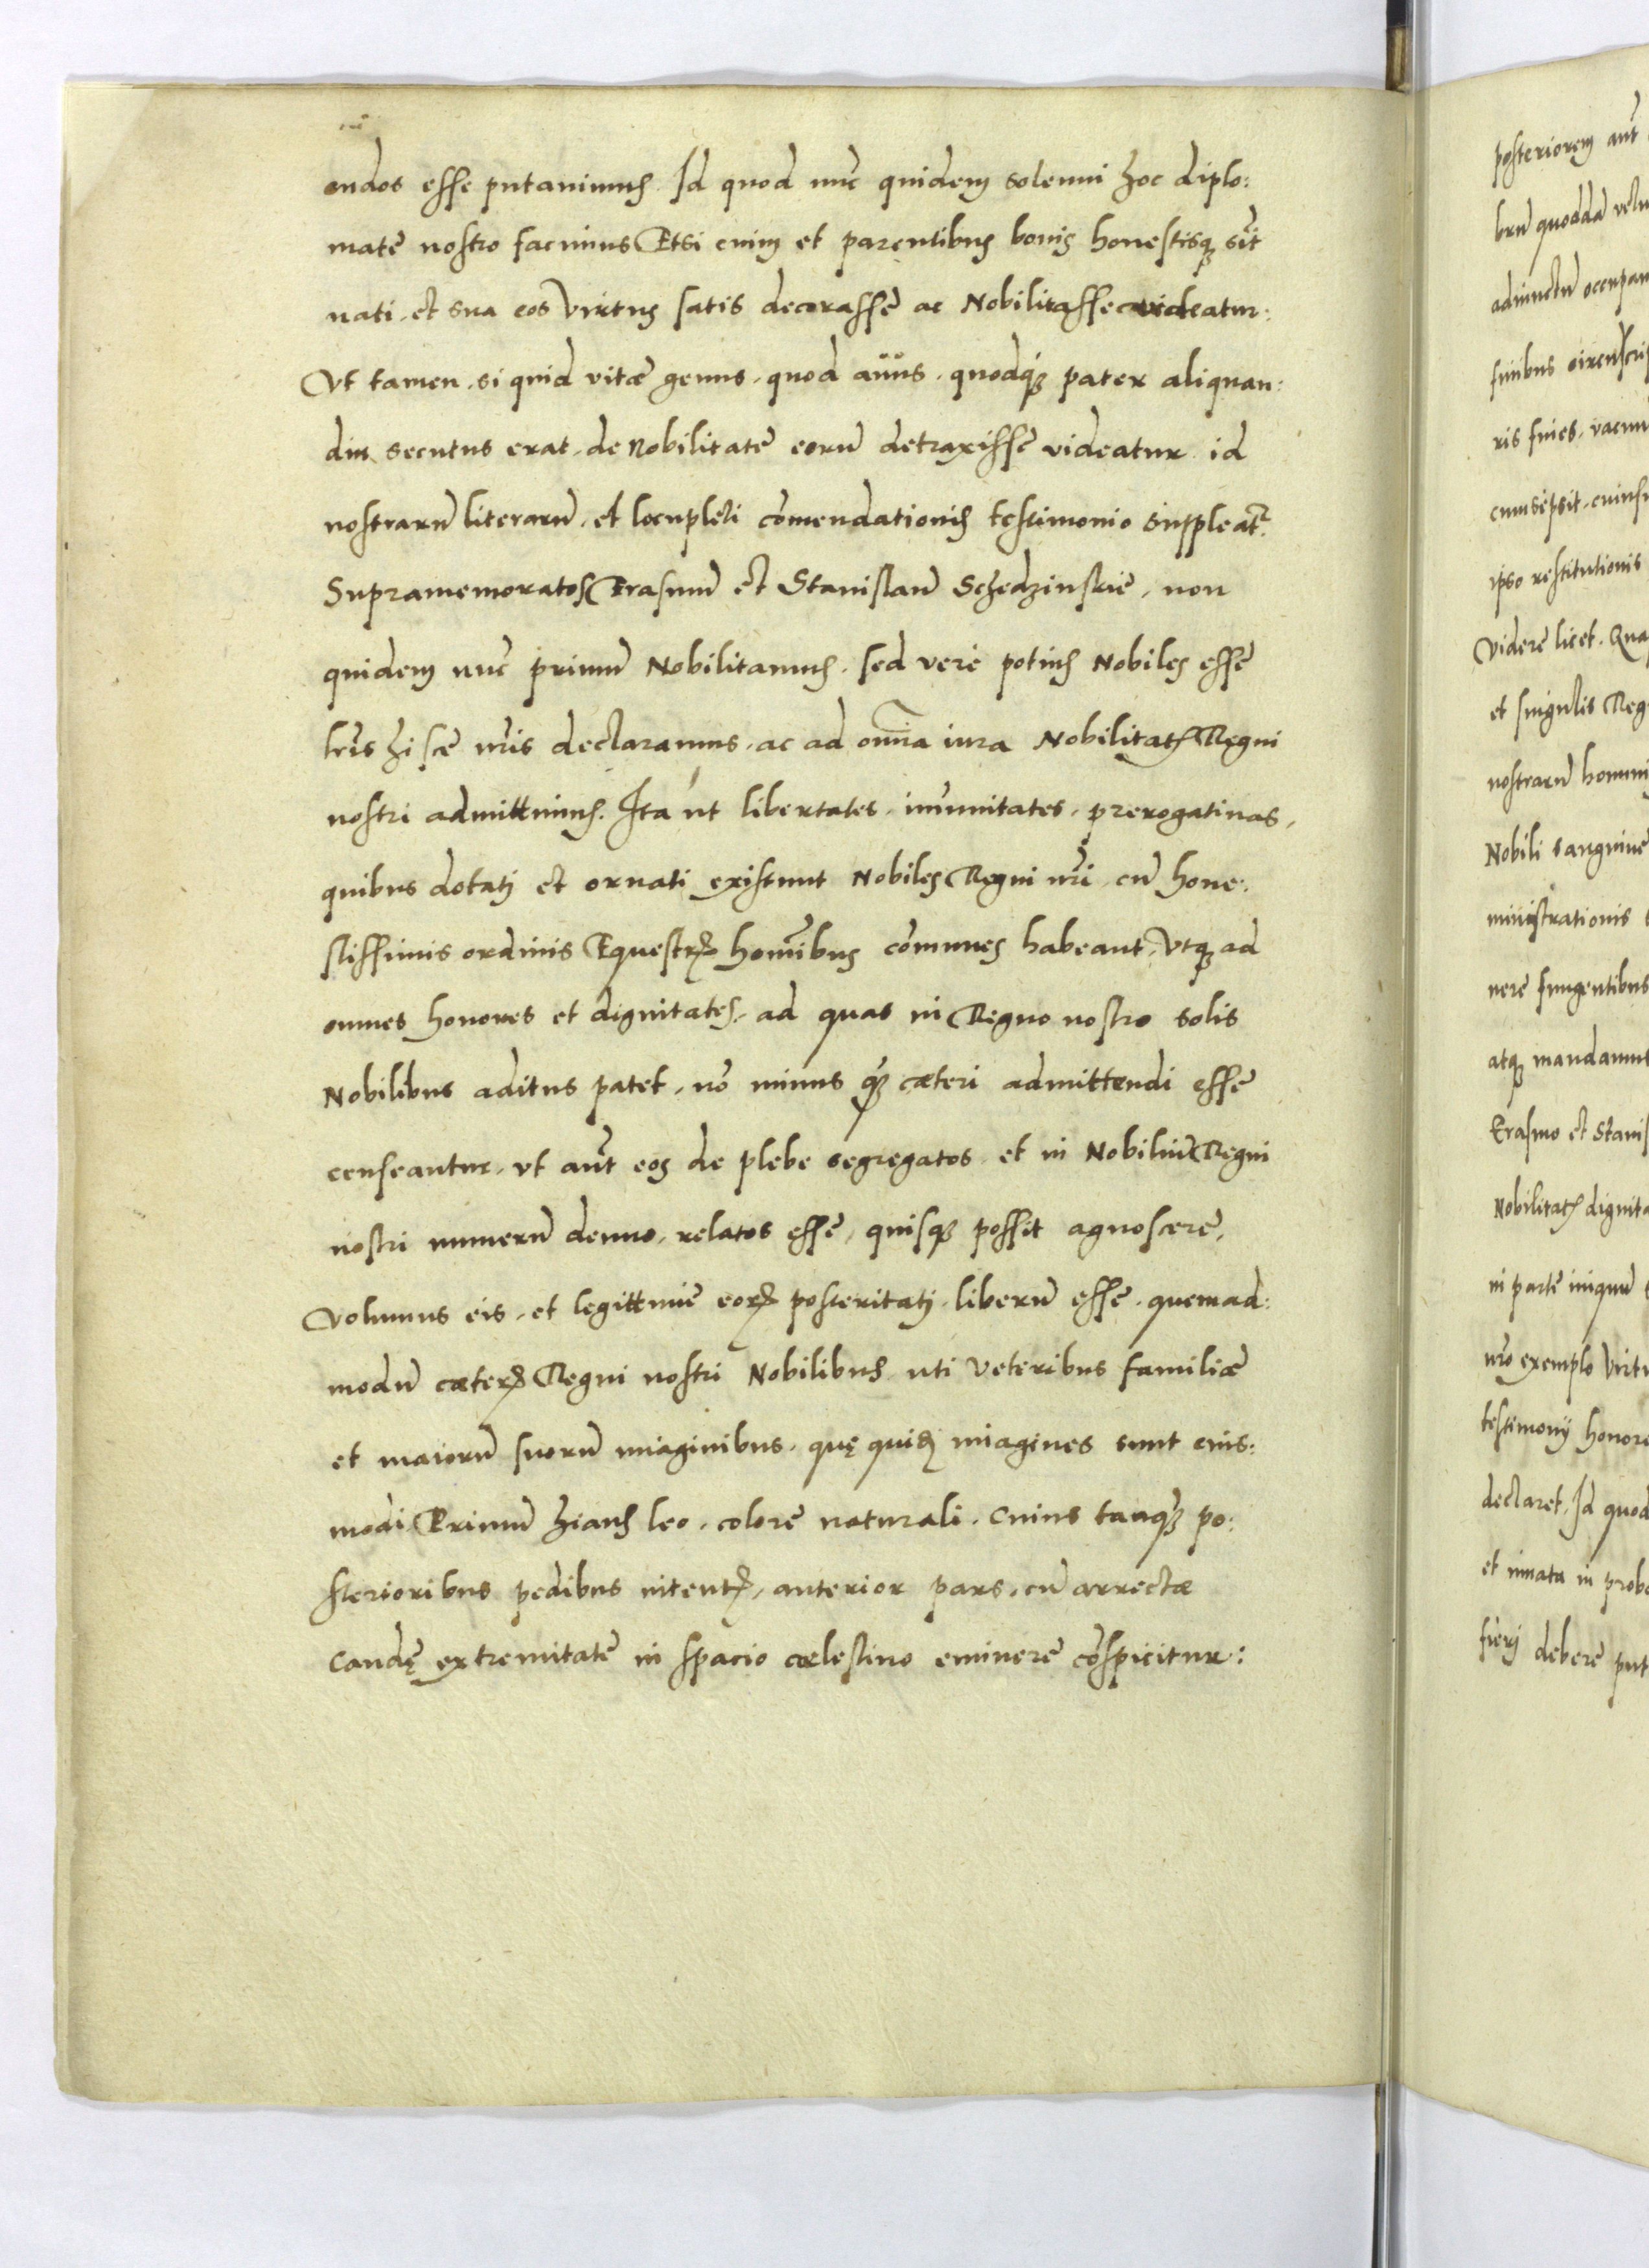 endos esse putauimus. Id quod nũc quidem solenni hoc diplo:
mate nostro facimus Etsi enim et parentibus bonis honestisq; sũt
nati, et sua eos virtus satis decorasse ac Nobilitasse videatur:
Vt tamen, si quid vitæ genus, quod auus, quodq; pater aliquan:
diu secutus erat, de Nobilitate eorũ detraxisse videatur id
nostrarũ literarũ, et locupleti cõmendationis testimonio suppleat̃:
Supramemoratos Erasmũ et Stanislaũ Schedzinskie, non
quidem nũc primũ Nobilitamus, sed vere potius Nobiles esse
lr̃is hisce nr̃is declaramus, ac ad om̃ia iura Nobilitatꝭ Regni
nostri admittimus. Ita ut libertates, im̃unitates, prerogatiuas,
quibus dotati et ornati existunt Nobiles Regni nr̃i, cũ hone:
stissimis ordinis Equestrꝭ hom̃ibus cõmunes habeant, Vtq; ad
omnes honores et dignitates, ad quas in Regno nostro solis
Nobilibus aditus patet, nõ minus q̃; cæteri admittendi esse
censeantur, vt aũt eos de plebe segregatos, et in Nobiliũ Regni
nostri numerũ denuo, relatos esse, quisq; possit agnoscere,
Volumus eis, et legittimæ eorꝝ posteritati, liberũ esse, quemad:
modũ cæterꝭ Regni nostri Nobilibus, uti veteribus familiæ
et maiorũ suorũ imaginibus, quę quidẽ imagines sunt eius:
modi, Primũ hians leo, colore naturali, Cuius tanq̃; po:
sterioribus pedibus nitentꝭ, anterior pars, cũ arrectæ
Caudę extremitate in spacio cælestino eminere cõspicitur:
posteriorem aũt
brũ quoddã velu
adiunctũ occupan
finibus circũscri
ris fines, vacuũ
ipso restitutionis
Videre licet. Qua
et singulis Reg
nostrarũ homini
Nobili sanguine
ministrationis
nere fungentibus
atq; mandamus
Erasmo et Stanis
Nobilitatꝭ dignita
in parte iniquũ
nr̃o exemplo Virtu
testimonij honore
declaret, Id quod
et innata in probo
fieri debere put